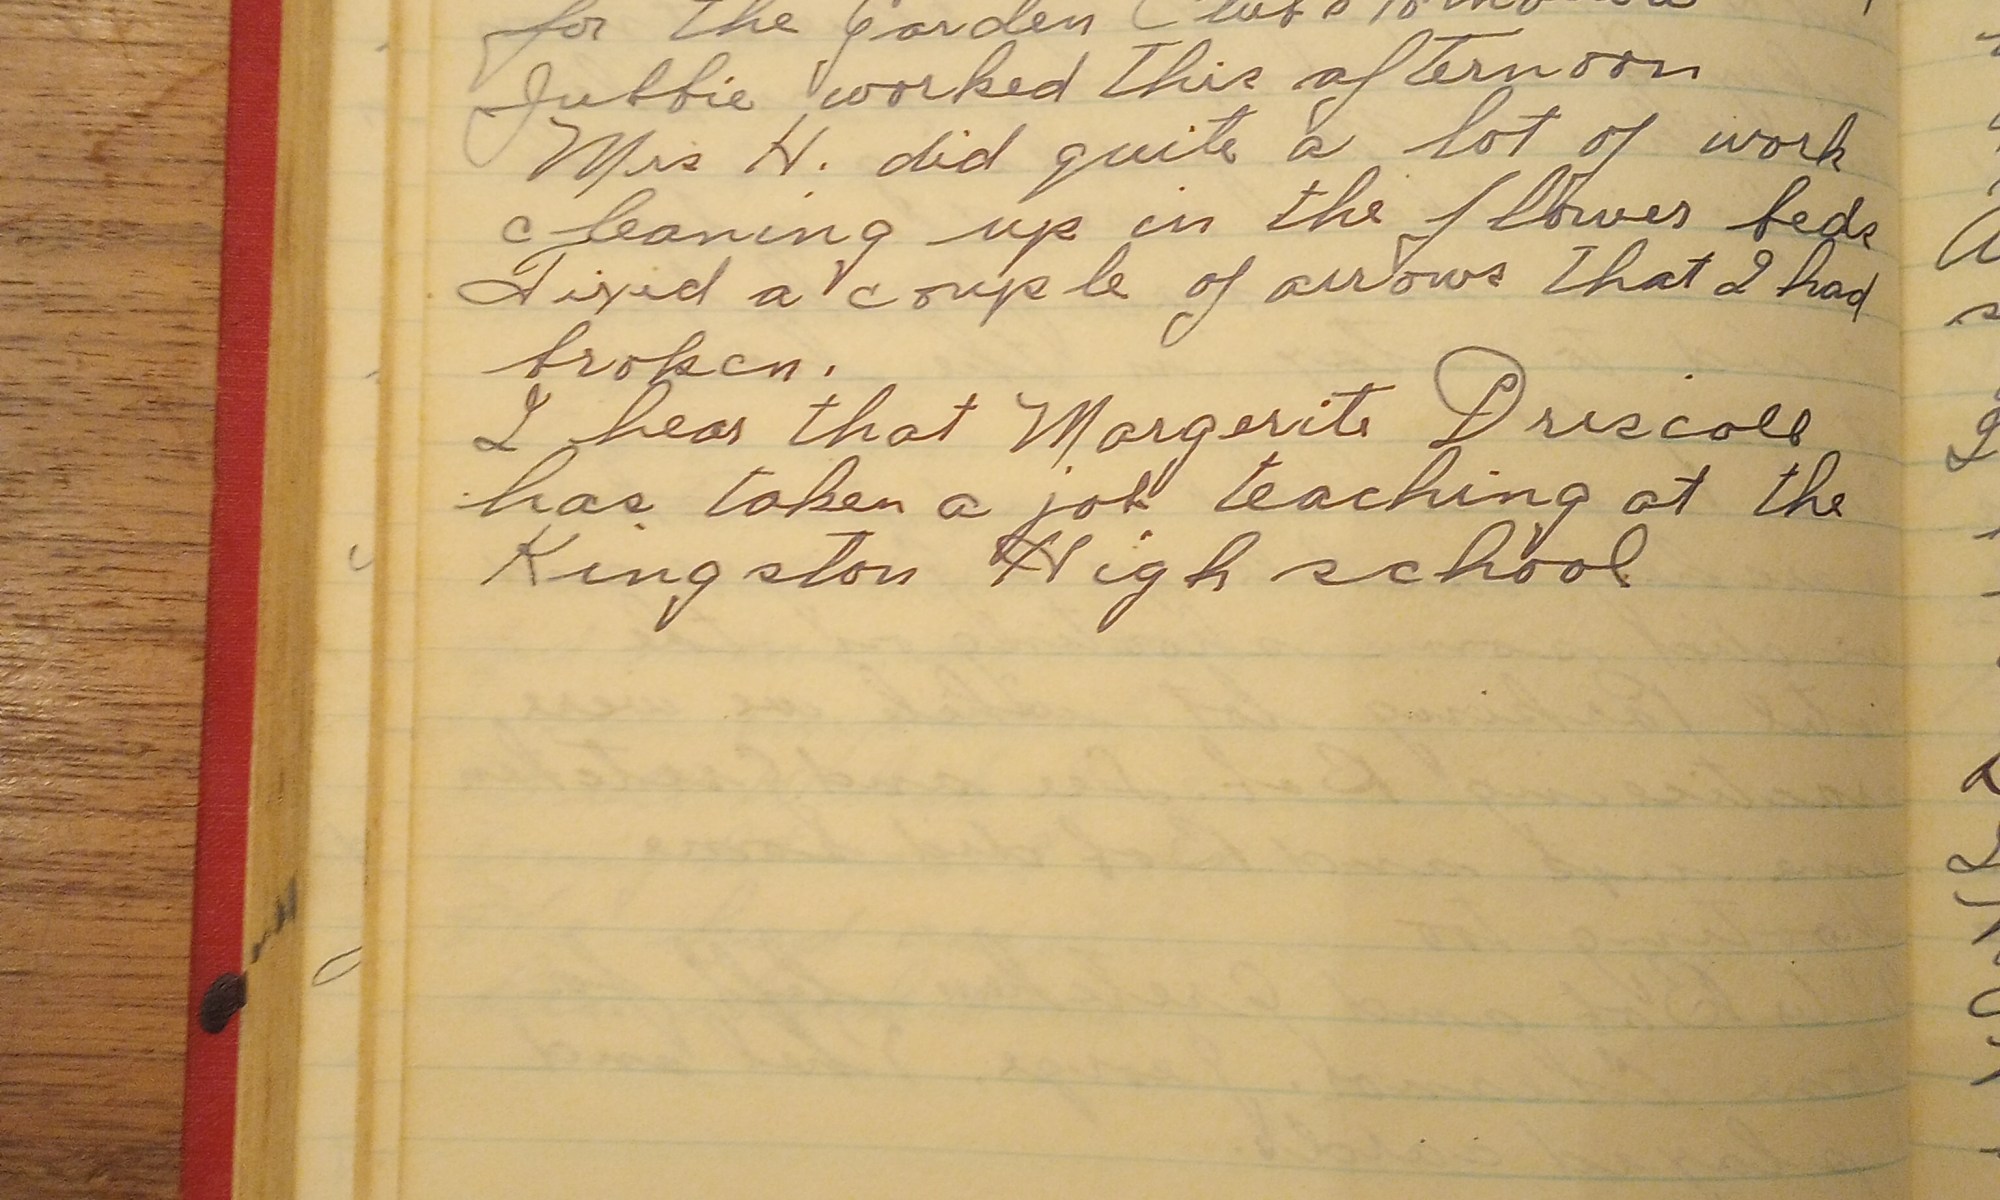 for the Garden Club tomorrow
Jubbie worked this afternoon
Mrs H. did quite a lot of work
cleaning up in the flower beds
Fixed a couple of arrows that I had
broken.
I hear that Margerite Driscoll
has taken a job teaching at the
Kingston High school